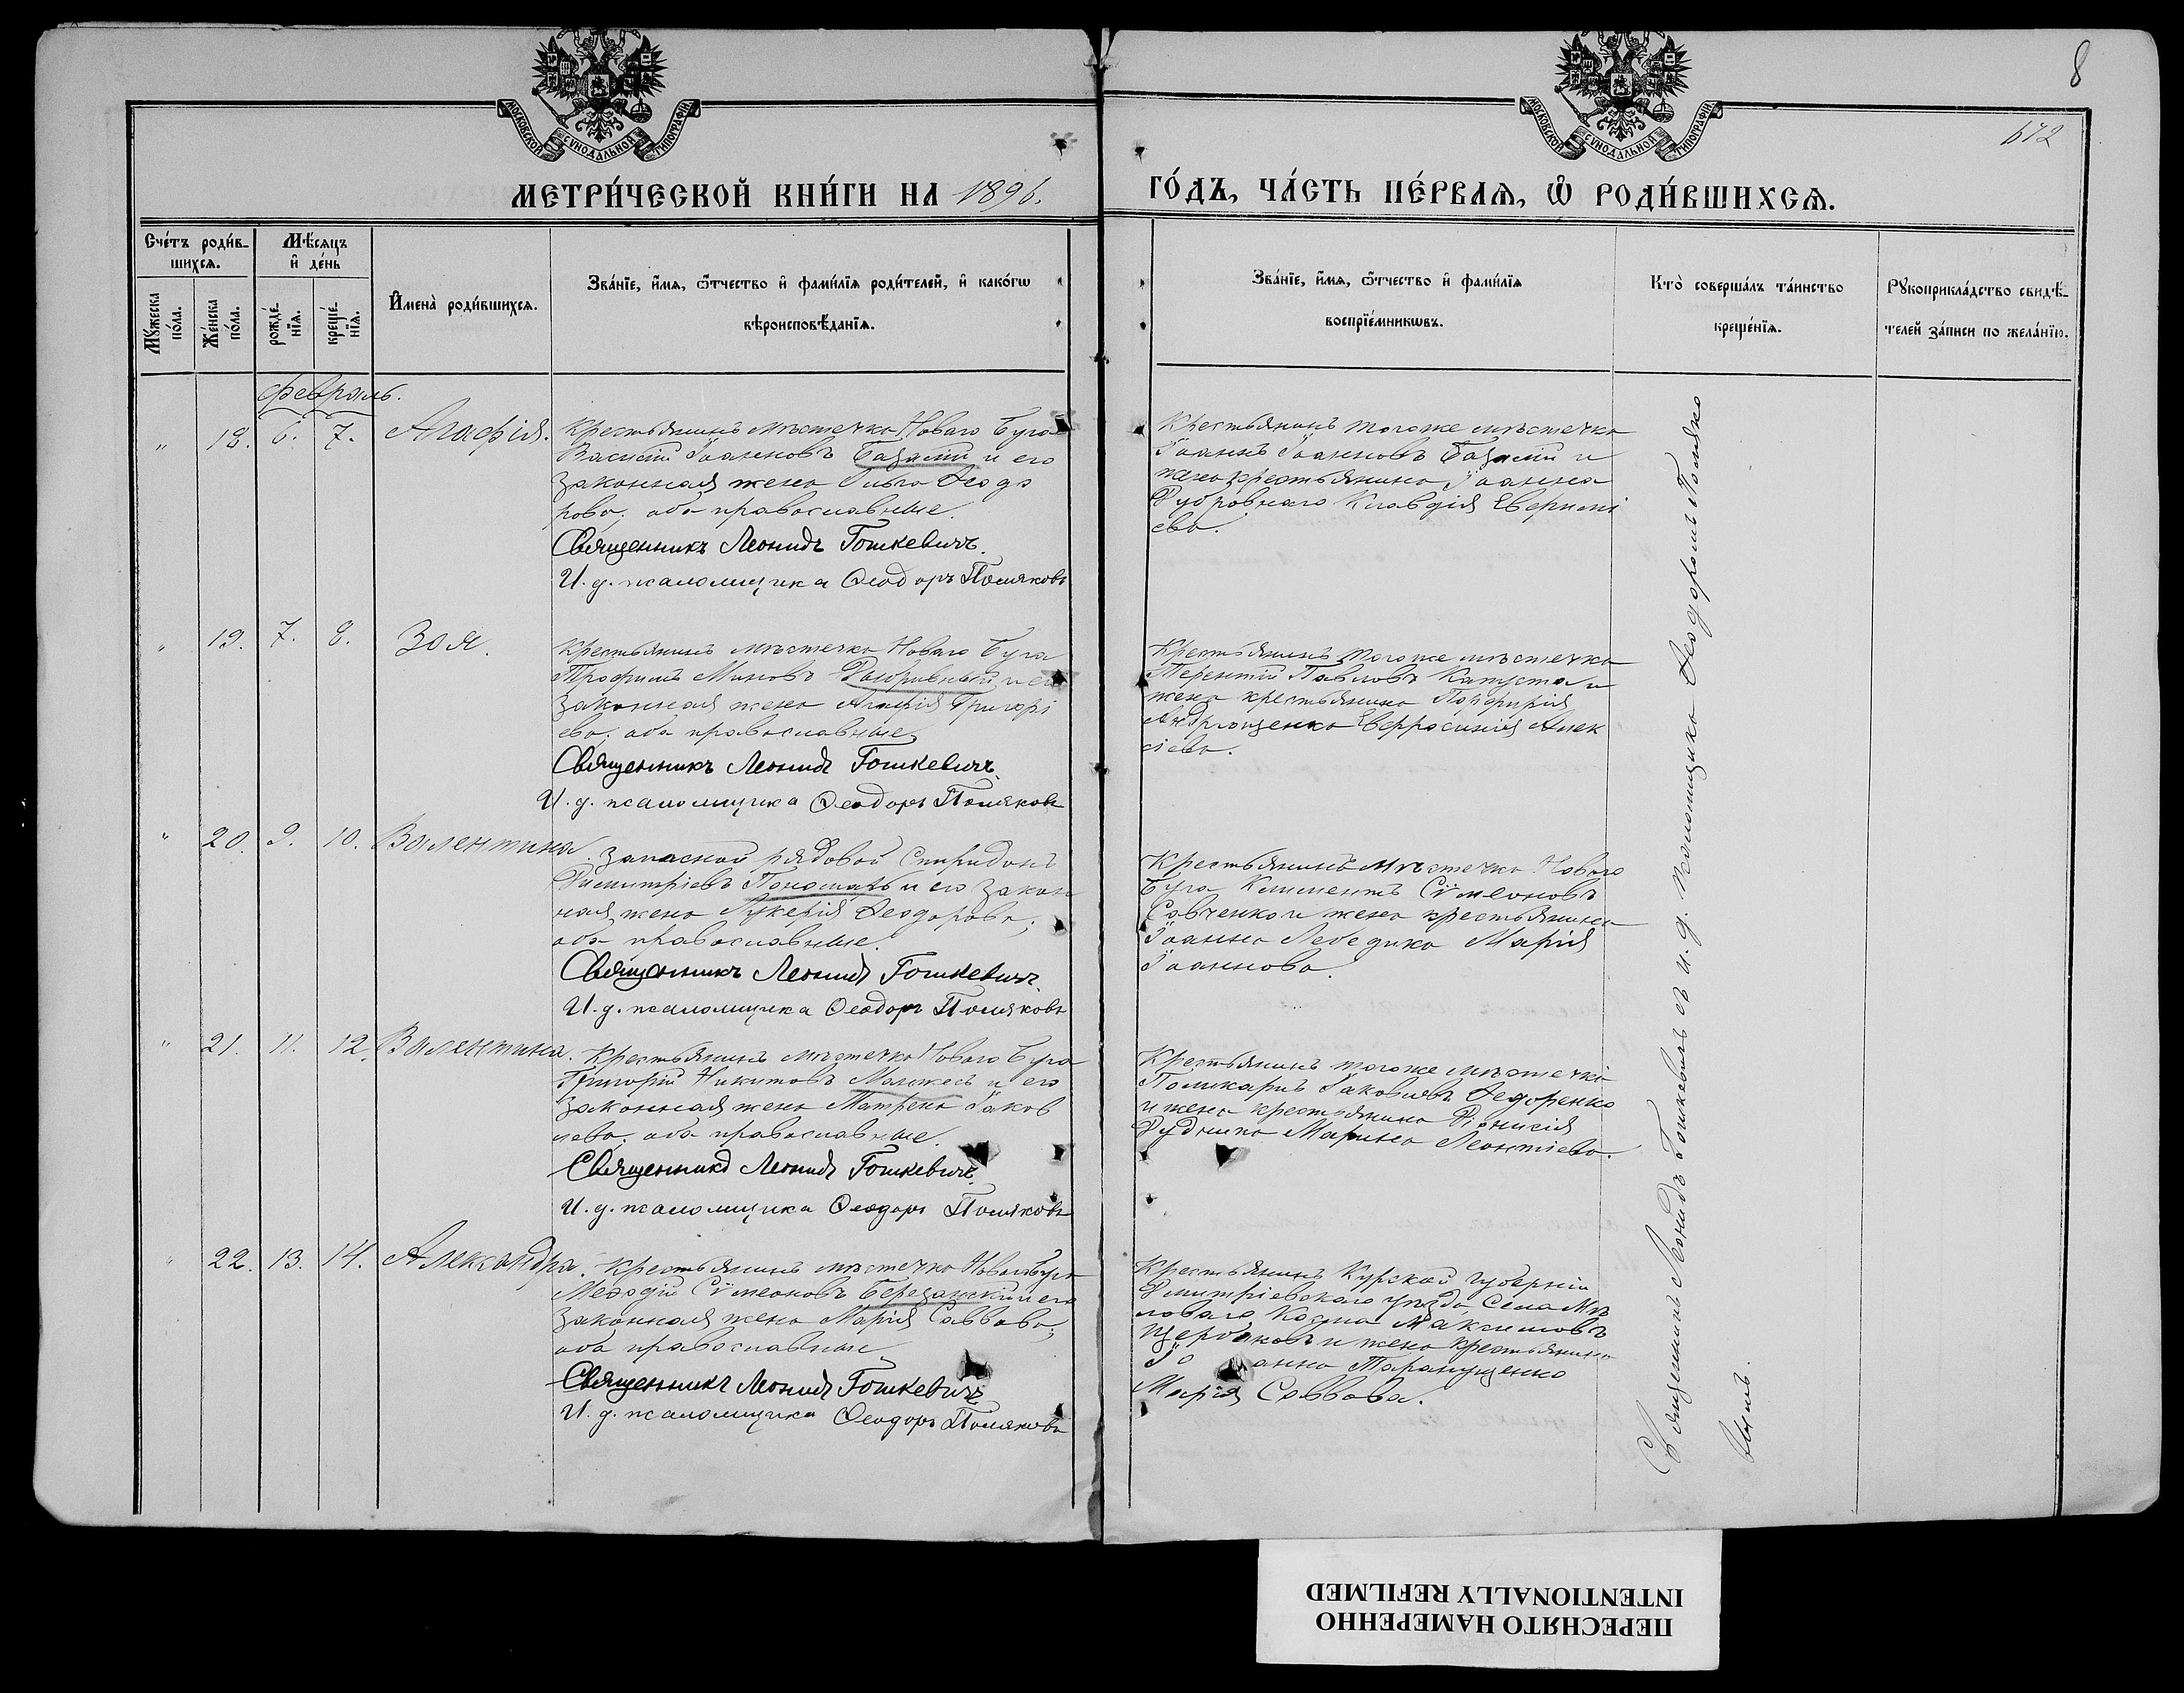 8
672
МОСКОВСКОЙ СѴНОДАЛЬНОЙ ТИПОГРАФІИ
МОСКОВСКОЙ СѴНОДАЛЬНОЙ ТИПОГРАФІИ
МЕТРИ́ЧЕСКОЙ КНИ́ГИ НА 1896.
ГО́ДЪ, ЧА́СТЬ ПЕ́РВАѦ, Ѿ РОДИ́ВШИХСѦ.
Сче́тъ роди́в-
шихсѧ.
Мꙋжеска по́ла.
Же́нска по́ла.
Мѣ́сѧцъ и҆ де́нь
рожде́-
нїѧ.
креще́-
нїѧ.
И҆мена̀ роди́вшихсѧ.
Зва́нїе, и҆́мѧ, ѻ҆́тчество и҆ фами́лїѧ роди́телей, и҆ како́гѡ
вѣроисповѣ́данїѧ.
Зва́нїе, и҆́мѧ, ѻ҆́тчество и҆ фами́лїѧ
воспрїе́мникѡвъ.
Кто̀ соверша́лъ та́инство
креще́нїѧ.
Рꙋкоприкла́дство свидѣ́-
телей за́писи по жела́нїю.
Февраль.
" 18. 6. 7. Агафія.
Крестьянинъ мѣстечка Новаго Буга
Василій Іоанновъ Базалій и его
законная жена Ольга Ѳеодо
рова; оба православные.
Священникъ Леонидъ Гошкевичъ.
И. д. псаломщика Ѳеодоръ Поляковъ
Крестьянинъ тогоже мѣстечка
Іоаннъ Іоанновъ Базалій и
жена крестьянина Іоанна
Дубровнаго Клавдія Евгені
ева.
" 19. 7. 8. Зоя.
Крестьянинъ мѣстечка Новаго Буга
Трофимъ Миновъ и его
законная жена Агафія Григорі
ева; оба православные
Священникъ Леонидъ Гошкевичъ.
И. д. псаломщика Ѳеодоръ Поляковъ
Крестьянинъ тогоже мѣстечка
Терентій Павловъ Капуста и
жена крестьянина Порфирія
Андрющенка Евфросинія Алек
сіева.
" 20. 9. 10. Валентина.
Запасной рядовой Спиридонъ
Димитріевъ Пономарь и его закон
ная жена Лукерія Ѳеодорова;
оба православные.
Священникъ Леонидъ Гошкевичъ.
И. д. псаломщика Ѳеодоръ Поляковъ
Крестьянинъ мѣстечка Новаго
Буга Климентъ Сѵмеоновъ
Савченко и жена крестьянина
Іоанна Лебедика Марія
Іоаннова.
" 21. 11. 12. Валентина.
Крестьянинъ мѣстечка Новаго Буга
Григорій Никитовъ и его
законная жена Матрена Іаков
лева; оба православные.
Священникъ Леонидъ Гошкевичъ.
И. д. псаломщика Ѳеодоръ Поляковъ
Крестьянинъ тогоже мѣстечка
Поликарпъ Іаковлевъ Ѳедоренко
и жена крестьянина Діонисія
Рудника Марина Леонтіева.
" 22. 13. 14. Александра.
Крестьянинъ мѣстечка Новаго Буга
Меѳодій Сѵмеоновъ Березанскій и его
законная жена Марія Саввова;
оба православные
Священникъ Леонидъ Гошкевичъ
И. д. псаломщика Ѳеодоръ Поляковъ
Крестьянинъ Курской губерніи
Дмитріевскаго уѣзда, Села Мѣ
ловаго Косма Максимовъ
Щербаковъ и жена крестьянина
Іоанна Таранущенка
Марія Саввова.
Священникъ Леонидъ Гошкевичъ съ и. д. псаломщика Ѳеодоромъ Поляко
вымъ.
ПЕРЕСНЯТО НАМЕРЕННО
INTENTIONALLY REFILMED